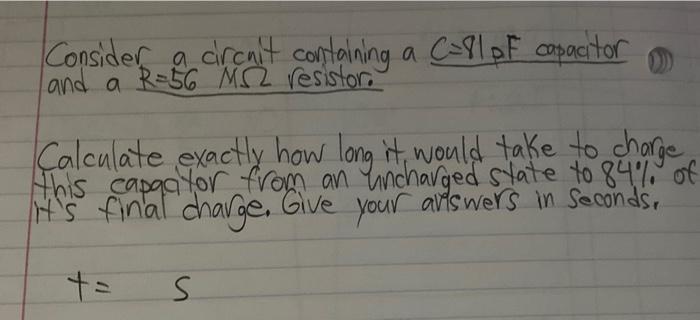 Consider a circuit containing a C=81pF capacitor
and a R=56 MΩ resistor.
Calculate exactly how long it would take to charge
this capacitor from an uncharged state to 84% of
it's final charge. Give your answers in seconds.
t= s